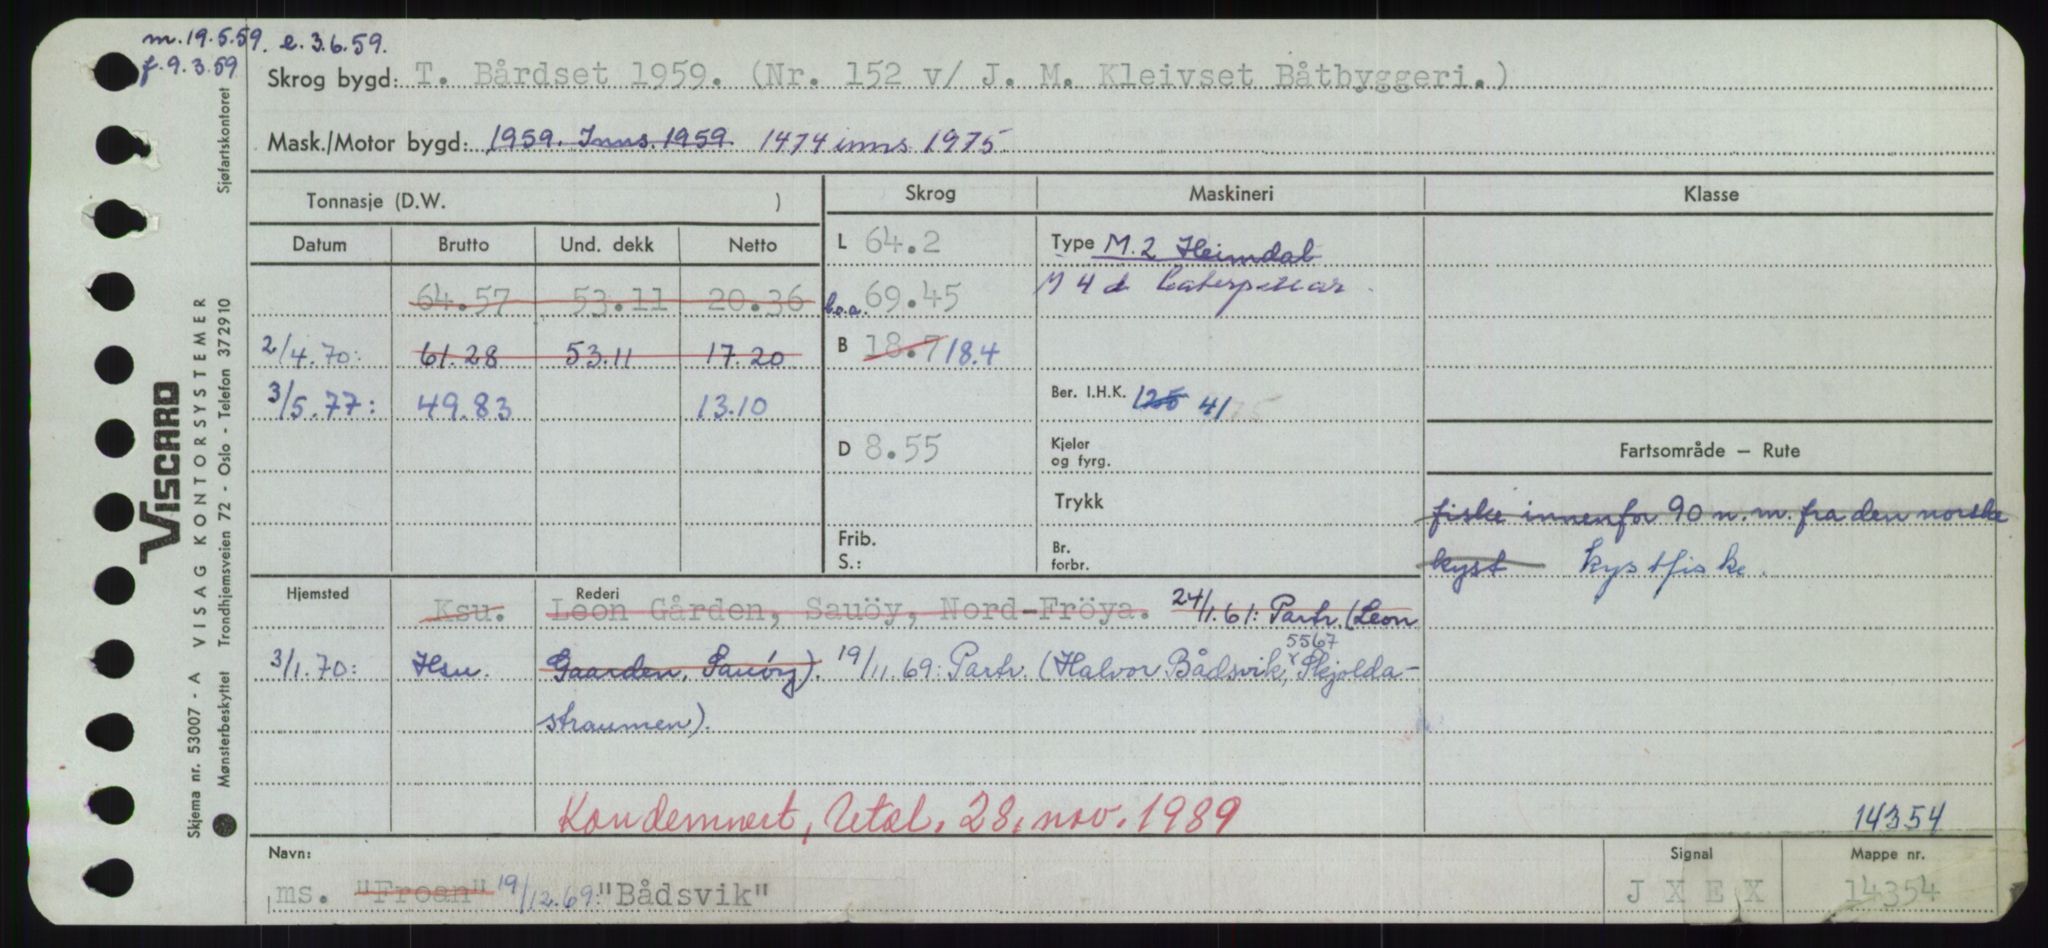 m. 19.5.59. e. 3.6.59.
f. 9.3.59
Sjøfartskontoret
Skrog bygd: T. Bårdset 1959. (Nr. 152 v/ J. M. Kleivset Båtbyggeri.)
Mask./Motor bygd: 1959. Inns. 1959 1474 inns 1975
Tonnasje (D.W. )
Skrog Maskineri Klasse
Datum Brutto Und. dekk Netto
L 64.2 Type M.2 Heimdal
64.57 53.11 20.36
l.o.a. 69.45 M 4 d Caterpillar
2/4.70: 61.28 53.11 17.20
B 18.7 18.4
3/5.77: 49.83 13.10
Ber. I.H.K. 125 41
D 8.55 Kjeler og fyrg.
Fartsområde – Rute
Trykk
fiske innenfor 90 n.m. fra den norske
kyst kystfiske.
Frib.
S.:
Br. forbr.
Hjemsted Rederi
Ksu. Leon Gården, Sauöy, Nord-Fröya. 24/1.61: Partr. (Leon
3/1.70: Hsu. Gaarden, Sauöy). 19/11.69: Partr. (Halvor Bådsvik, 5567 Skjolda-
straumen).
Kondemnert, Utal. 28. nov. 1989
14354
Navn: Signal Mappe nr.
ms. "Froan" 19/12.69: "Bådsvik" J X E X 14354
VISCARD
Skjema nr. 53007 - A VISAG KONTORSYSTEMER
Mønsterbeskyttet Trondhjemsveien 72 - Oslo - Telefon 372910